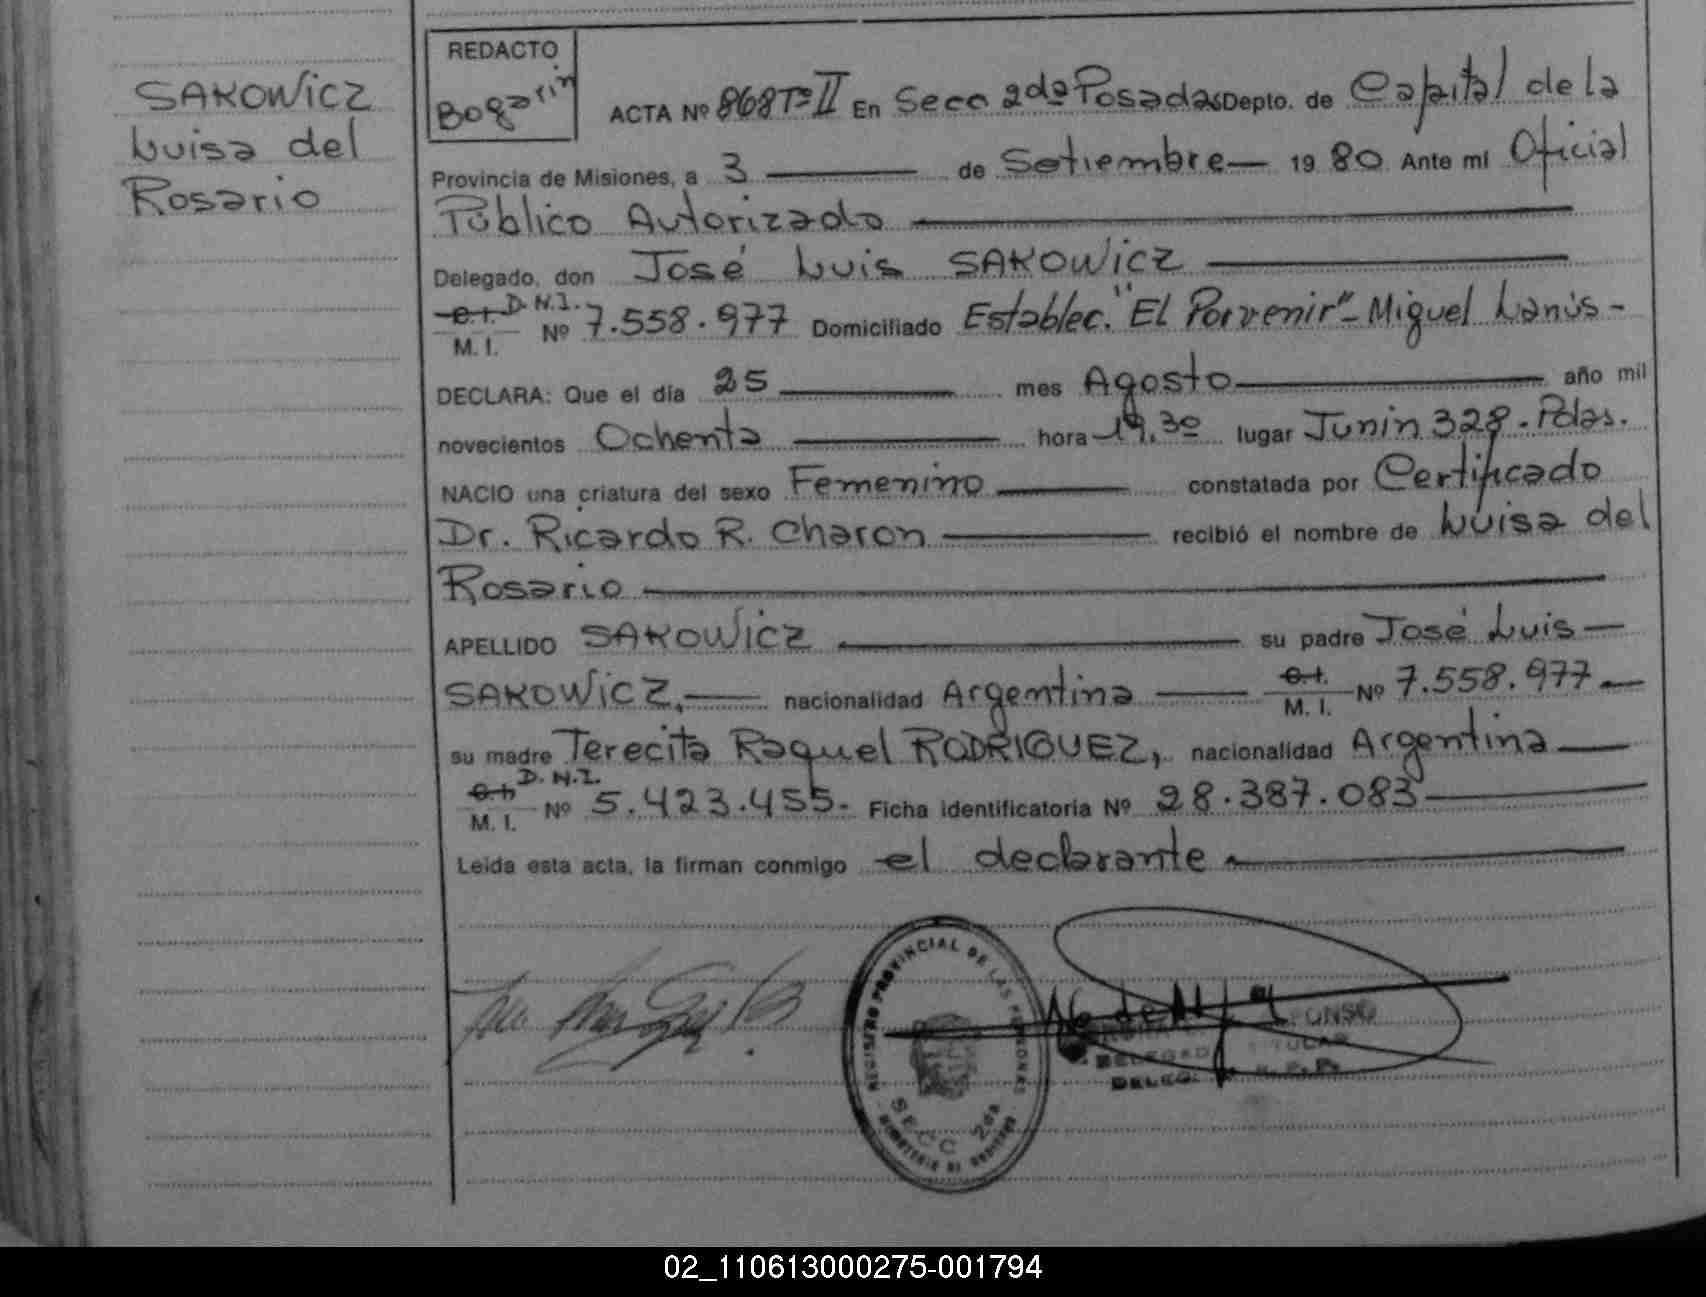 SAKOWicz
Luisa del
Rosario
REDACTO
Bogarin
ACTA Nº 868 Tº II En Secc 2da Posadas Depto. de Capital de la
Provincia de Misiones, a 3 de Setiembre 19 80 Ante mi Oficial
Público Autorizado
Delegado, don José Luis SAKOWicz
C.I. D.N.I.
M. I. Nº 7.558.977 Domiciliado Establec. "El Porvenir" - Miguel Lanús -
DECLARA: Que el día 25 mes Agosto año mil
novecientos Ochenta hora 19,30 lugar Junin 328. Pdas.
NACIO una criatura del sexo Femenino constatada por Certificado
Dr. Ricardo R. Charon recibió el nombre de Luisa del
Rosario
APELLIDO SAKOWicz su padre José Luis
SAKOWicz, nacionalidad Argentina C.I. M. I. Nº 7.558.977
su madre Terecita Raquel RODRIGUEZ, nacionalidad Argentina
C.I. D.N.I.
M. I. Nº 5.423.455. Ficha identificatoria Nº 28.387.083
Leída esta acta, la firman conmigo el declarante
REGISTRO PROVINCIAL DE LAS PERSONAS
SECC 2da
MINISTERIO DE GOBIERNO
02_110613000275-001794